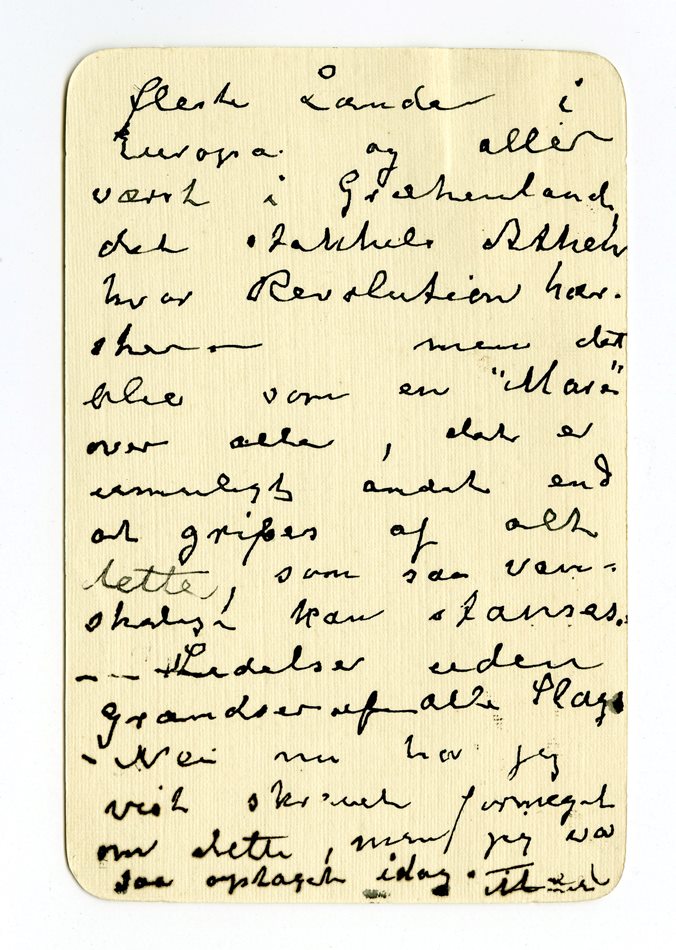 fleste Lande i
Europa og aller
værst i Grækenland,
det stakkels Athen
hvor Revolution hær-
sker — men det
blir som en "Mare"
over alle, det er
umuligt andet end
at gribes af alt
dette, som saa van-
skeligt kan stanses.
— — Lidelser uden
Grændser af alle Slags
- Nei nu har jeg
vist skrevet formeget
om dette, men jeg var
saa optaget idag.